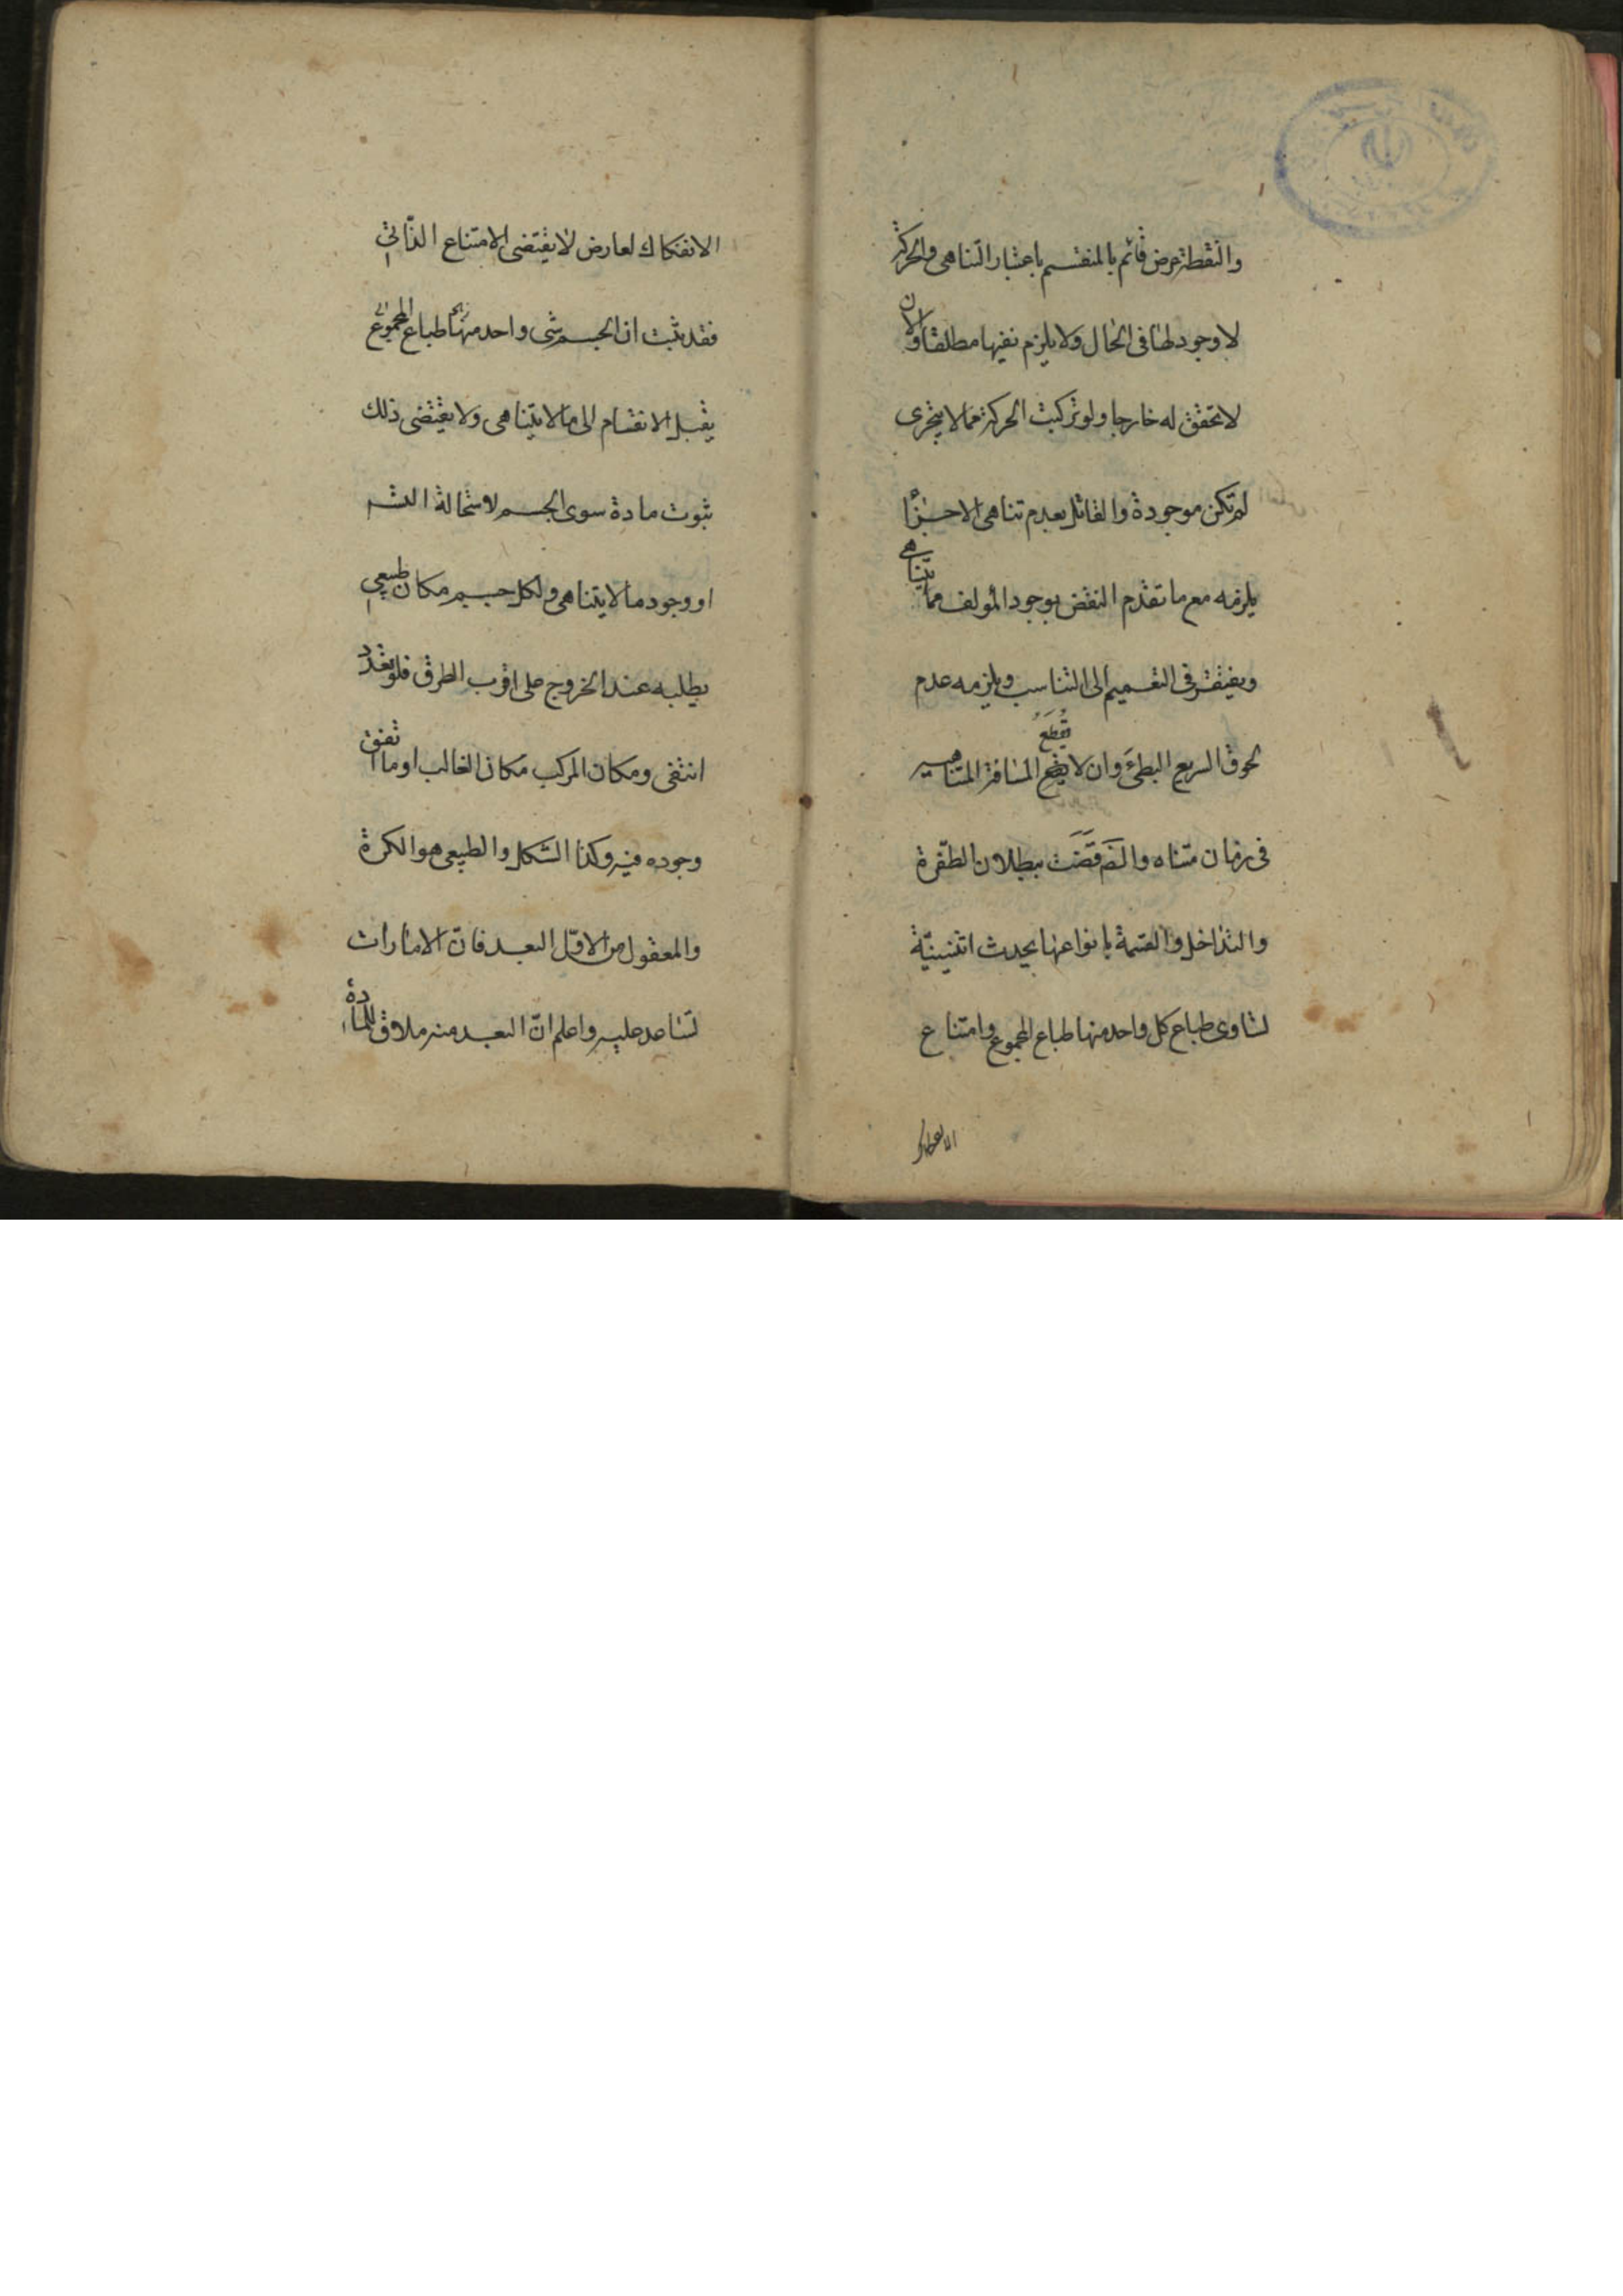 والنقطة عرض قائم بالمنقسم باعتبار التناهى والحركة
لا وجود لها فى الحال ولا يلزم نفيها مطلقا والان
لا تحقق له خارجا ولو تركبت الحركة مما لا يتجزى
لم تكن موجودة والقائل بعدم تناهى الاجزأ
يلزمه مع ما تقدم النقض بوجود المؤلف مما يتناهى
ويفتقر فى التعميم الى التناسب ويلزمه عدم
لحوق السريع البطىَٔ وان لا يقطع المسافة المتناهيه
فى زمان متناه والضَّرورة قَضَت ببطلان الطفرة
والتداخل والقسمة بانواعها يحدث اثنينيّة
تساوى طباع كل واحد منها طباع المجموع وامتناع
الانفكاك لعارض لا يقتضى الامتناع الذّاتى
فقد ثبت ان الجسم شى واحد منها طباع المجموع
يقبل الانقسام الى ما لا يتناهى ولا يقتضى ذلك
ثبوت مادة سوى الجسم لاستحالة التس
او وجود ما لا يتناهى ولكل جسم مكان طبيعى
يطلبه عند الخروج على اقرب الطرق فلو تعدد
انتفى ومكان المركب مكان الغالب او ما اتفق
وجوده فيه وكذا الشكل والطبيعى هو الكرة
والمعقول من الاوّل البعد فانّ الامارات
تساعد عليه واعلم انّ البعد منه ملاق للمادة